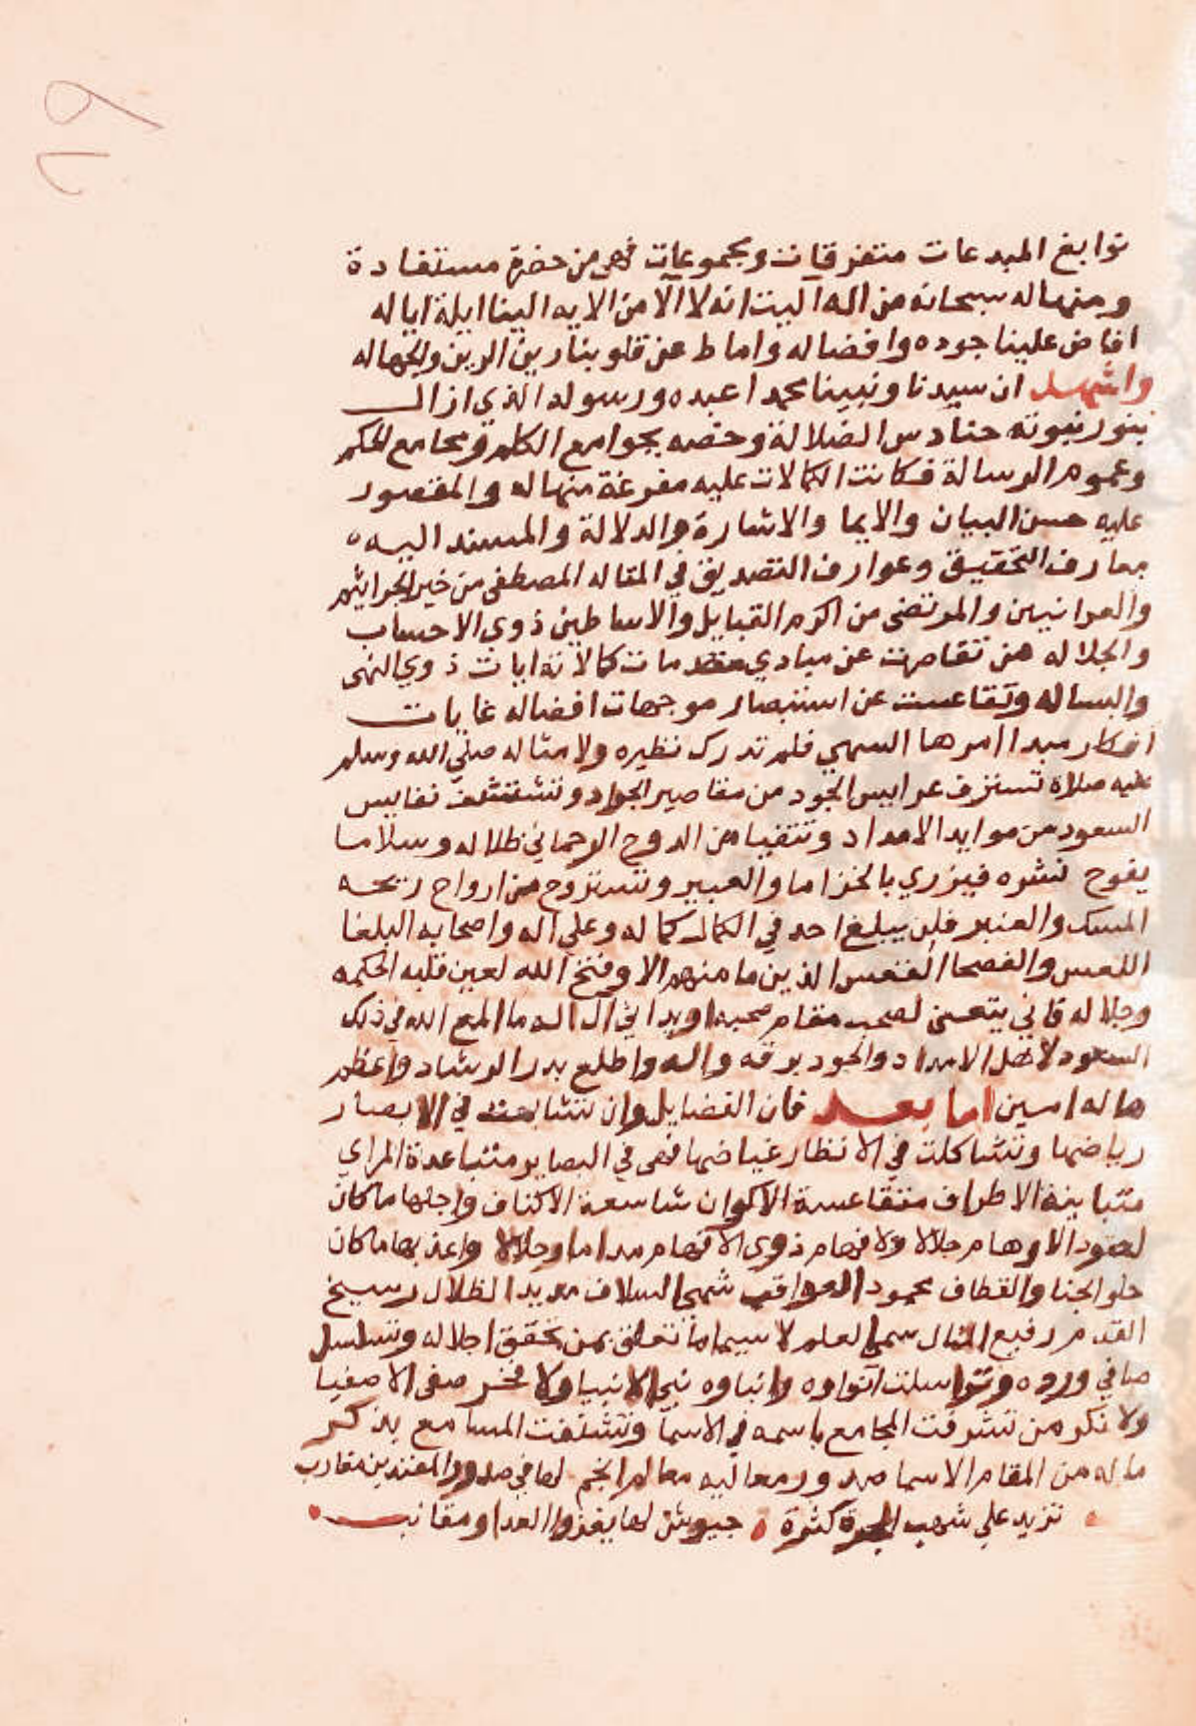 ٦٩
نوابغ المبدعات متفرقات ومجموعات فهي من حضرة مستفادة
ومنهاله سبحانه من اله آليت انه لا آلا من الايه الينا ايلة اياله
افاض علينا جوده وافضاله واماط عن قلوبنا رين الرين ولجهاله
واشهد ان سيدنا ونبينا محمدا عبده ورسوله الذي ازال
بنور نبوته حنادس الضلالة وخصه بجوامع الكلم ومجامع الحكم
وعموم الرسالة فكانت الكمالات عليه مفرغة منهاله والمقصور
عليه حسن البيان والايما والاشارة والدلالة والمسند اليه
معارف التحقيق وعوارف التصديق في المقاله المصطفى من خير الجراثيم
والمرتضى من اكرم القبايل والاساطين ذوى الاحساب
والجلاله من تقاصرت عن مبادي مقدمات كمالاته ايات ذوي النهى
والبساله وتقاعست عن استبصار موجهات افضاله غايات
افكار مبدا امرها السهي فلم تدرك نظيره ولا مثاله صلى الله وسلم
عليه صلاة تستنزف عرايس الجود من مقاصير الجواد وتستشف نفايس
السعود من موايد الامداد وتتفيا من الدوح الرحماني ظلاله وسلاما
يفوح نشره فيزري بالخزاما والعبير وتستروح من ارواح ريحه
المسك والعنبر فلن يبلغ احد في الكمال كماله وعلي اله واصحابه البلغا
اللعس والفصحا الذين ما منهم الا وفتح الله لعين قلبه الحكمه
وجلاله فاني يتعسى لصحب مقام صحبه اويداني ال اله ما المع الله في ذلك
السعود لاهل الامداد والجود برقه واله واطلع بدر الرشاد واعظم
هاله امين اما بعد فان الفضايل وان تشابهت في الابصار
رياضها وتشاكلت في الانظار غياضها فهى في البصاير متباعدة المراي
متباينة الاطراف متقاعسة الاكوان شاسعة الاكناف واجلها ما كان
لعقود الاوهام حلالا ولافهام ذوى الافهام مداما وحلالا واعذبها ما كان
حلو الجنا والقطاف محمود العواقب شهي السلاف مديد الظلال رسيخ
القدم رفيع المثال سمي العلم لاسيما ما تعلق بمن تحقق اجلاله وتسلسل
صافي ورده وتواسلت انواره وانباوه نبي الانبيا ولا فخر صفى الاصفيا
ولا نكر من تشرفت المجامع باسمه في الاسما وتشنفت المسامع بذكر
ماله من المقام الاسما صدور معاليه معالم الجم لها في صدور المفندين مقارب
تزيد علي شهب المجرة كثرة جيوش لها يغزوا العدا ومقانب